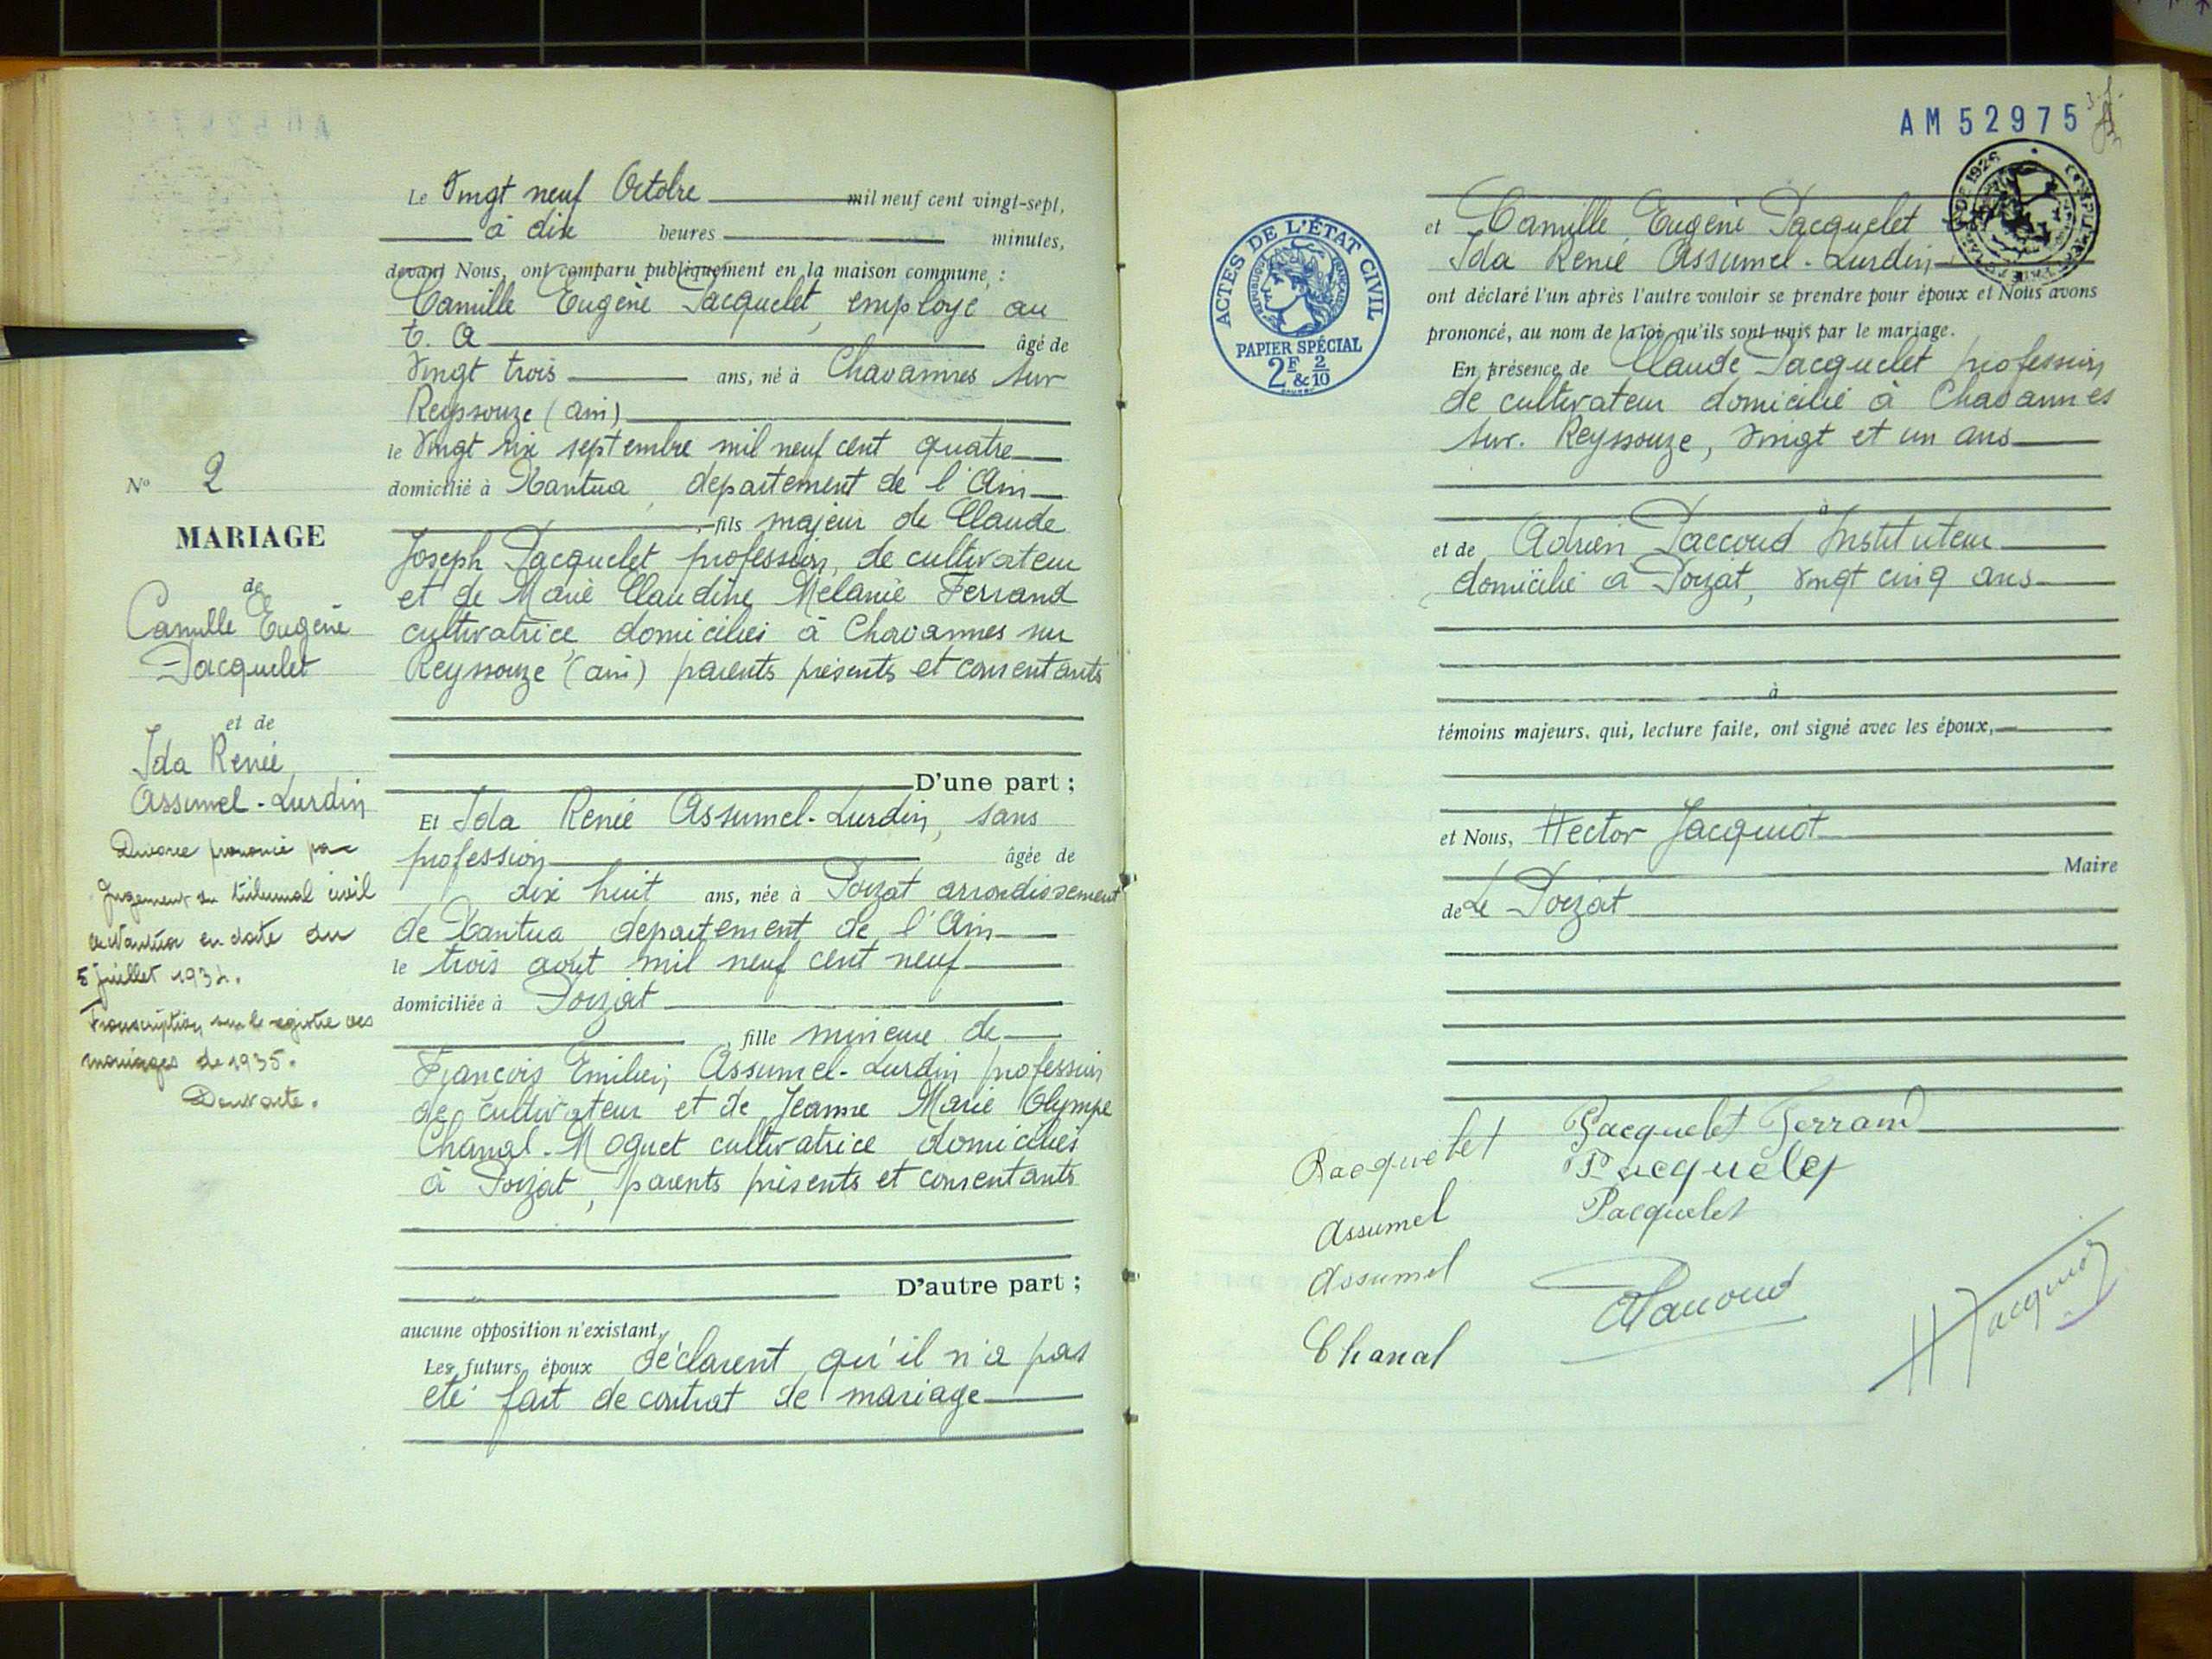 Le Vingt neuf Octobre mil neuf cent vingt-sept,
à dix heures minutes,
devant Nous, ont comparu publiquement en la maison commune, :
Camille Eugène Pacquelet, employé au
t. a âgé de
Vingt trois ans, né à Chavannes sur
Reyssouze (ain)
le Vingt six septembre mil neuf cent quatre
domicilié à Nantua, departement de l'Ain
, fils majeur de Claude
Joseph Pacquelet profession, de cultivateur
et de Marie Claudine Melanie Ferrand
cultivatrice, domiciliés à Chavannes sur
Reyssouze (ain) parents présents et consentants
D'une part ;
Et Ida Renée Assumel-Lurdin, sans
profession âgée de
dix huit ans, née à Poizat arrondissement
de Nantua, departement de l'Ain
le trois aout mil neuf cent neuf
domiciliée à Poizat
, fille mineure de
François Emilien Assumel-Lurdin profession
de cultivateur et de Jeanne Marie Olympe
Chanal-Moquet cultivatrice domiciliés
à Poizat, parents présents et consentants
D'autre part ;
aucune opposition n'existant,
Les futurs époux déclarent qu'il n'a pas
été fait de contrat de mariage
No 2
MARIAGE
de
Camille Eugène
Pacquelet
et de
Ida Renée
Assumel-Lurdin
Divorce prononcé par
jugement du tribunal civil
de Nantua en date du
5 juillet 1934.
Transcription sur le registre des
mariages de 1935.
Dont acte.
AM 52975
et Camille Eugène Pacquelet
Ida Renée Assumel-Lurdin
ont déclaré l'un après l'autre vouloir se prendre pour époux et Nous avons
prononcé, au nom de la loi, qu'ils sont unis par le mariage.
En présence de Claude Pacquelet profession
de cultivateur domicilié à Chavannes
sur. Reyssouze, vingt et un ans
à
et de Adrien Paccoud Instituteur
domicilié à Poizat, vingt cinq ans
à
témoins majeurs, qui, lecture faite, ont signé avec les époux,
et Nous, Hector Jacquiot
Maire
de Le Poizat
ACTES DE L'ÉTAT CIVIL
RÉPUBLIQUE FRANÇAISE
PAPIER SPÉCIAL
2F & 2/10
Pacquelet Ferrand
Pacquelet
Pacquelet
Pacquelet
Assumel
Assumel
Chanal
Paccoud
H Jacquiot